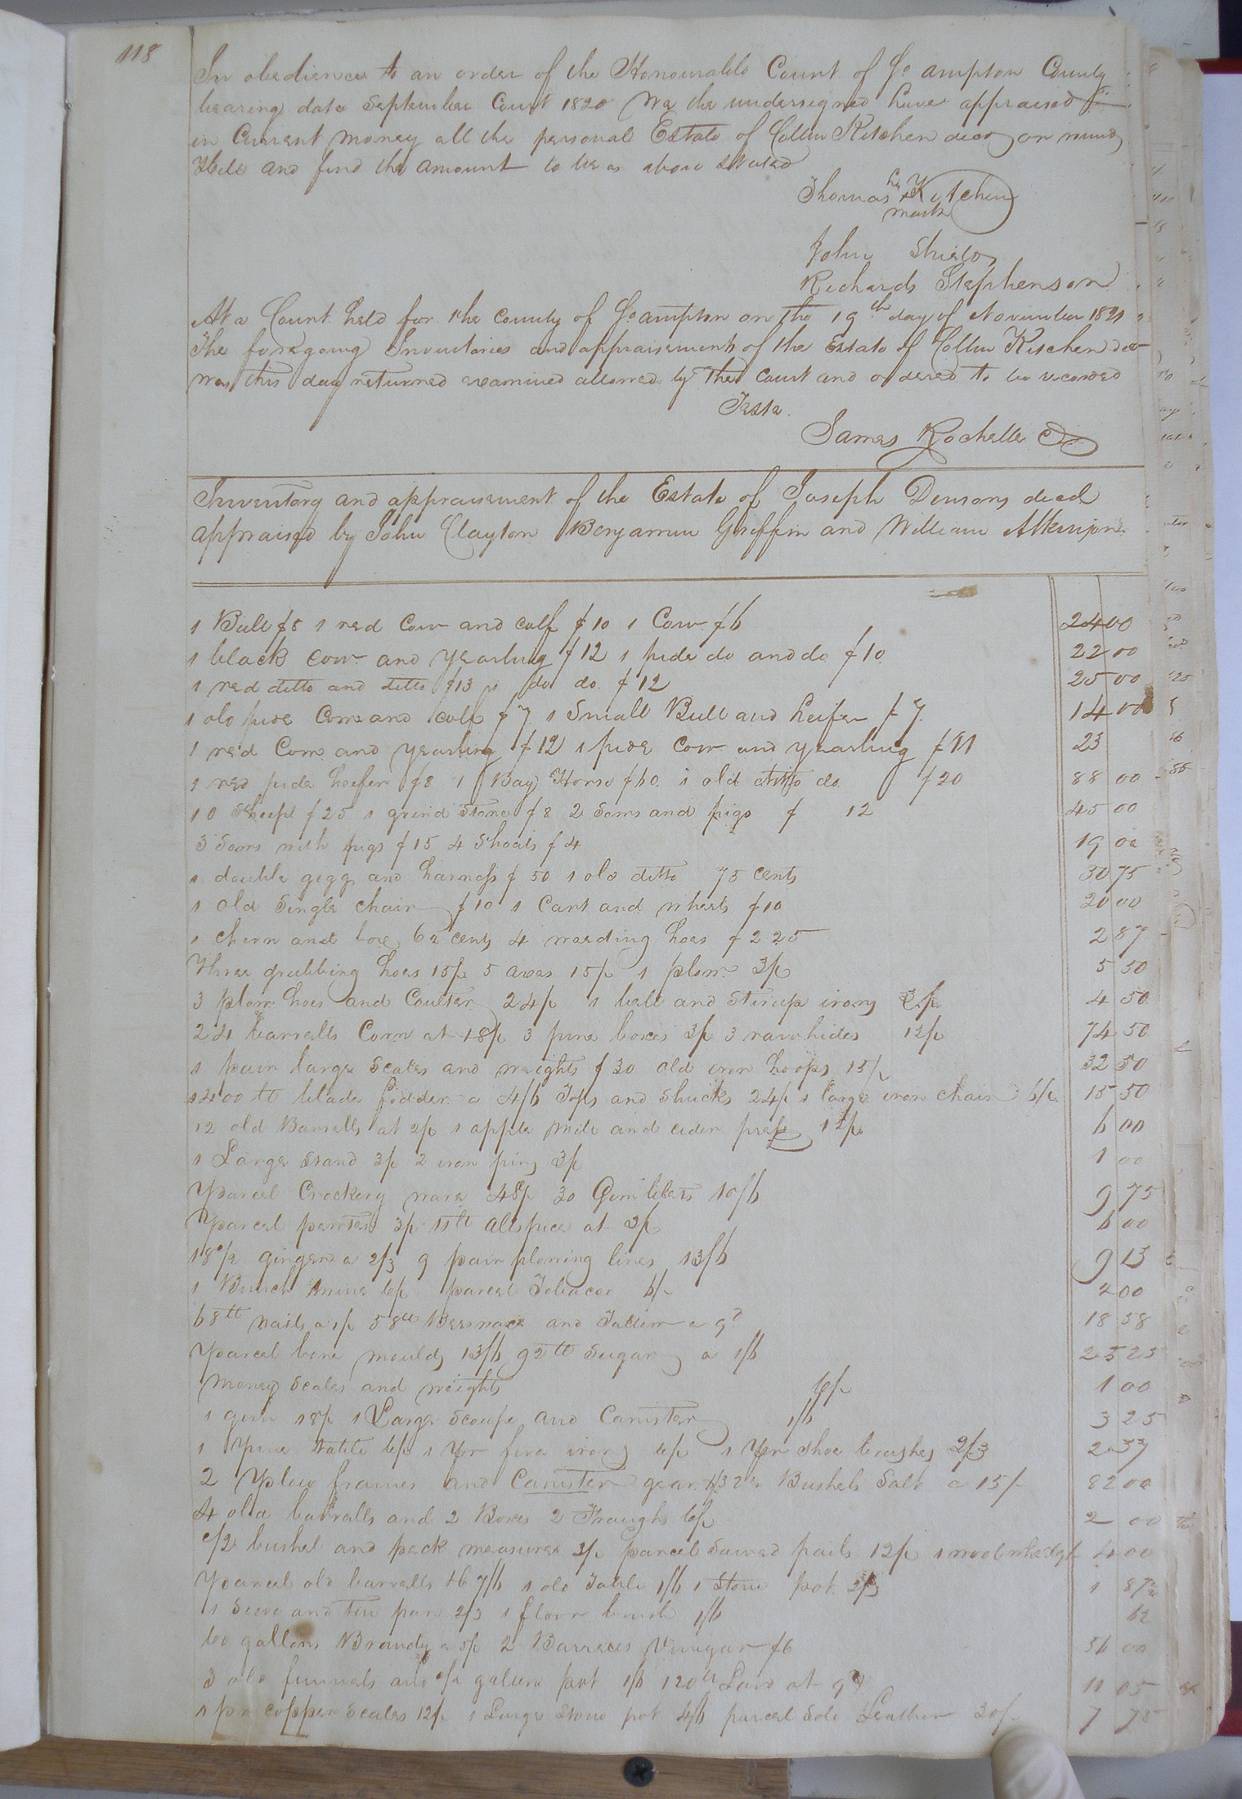 118
In obedience to an order of the Honourable Court of So ampton County
bearing date September Court 1820 We the undersigned have appraised
in Current money all the personal Estate of Collin Kitchen decd
and find the amount to be as above stated
Thomas his Kitchen
mark
John Shield
Richards Stephenson
At a Court held for the County of Soampton on the 19th day of November 1821
The foregoing Inventories and appraisement of the Estate of Collin Kitchen decd
was this day returned examined allowed by the Court and ordered to be recorded
Teste.
James Rochelle
Inventory and appraisement of the Estate of Joseph Densons decd
appraised by John Clayton Benjamin Griffin and William Atkinson
1 Bull $8 1 red Cow and calf $10 1 Cow $6 24 00
1 black cow and yearling $12 1 pide do and do $10 22 00
1 red ditto and ditto $13 1 do do $12 25 00
1 old pide Cow and calf $7 1 Small Bull and heifer $7 14 00
1 red Cow and yearling $12 1 pide cow and yearling $11 23
1 red pide heifer $8 1 Bay Horse $60 1 old ditto do $20 88 00
10 Sheep $25 1 grind Stone $8 2 Sows and pigs $ 12 45 00
3 Sows with pigs $15 4 Shoats $4 19 00
1 double gigg and harness $ 30 1 old ditto 75 cents 30 75
1 old Single chair $10 1 Cart and wheels $10 20 00
1 churn and 62 cents 4 weeding hoes $2 25 2 87
Three grubbing hoes 15/ 5 axes 15/ 1 plow 3/ 5 50
3 plow hoes and Coulter 24/ 1 bell and Stirrup irons 3/ 4 50
24 barrells Corn at 18/ 3 pine boxes 3/ 3 rawhides 12/ 74 50
1 pair large Scales and weights $30 old iron hoops 15/ 32 50
1200 lb blade fodder a 4/6 Tops and Shucks 24/ 1 large iron chain 6/ 15 50
12 old Barrells at 2/ 1 apple mill and cider press 12/ 6 00
1 Large Stand 3/ 2 iron pins 3/ 1 00
Parcel Crockery ware 48/ 30 Gimblets 10/6 9 75
Parcel pewter 3/ 11 lb allspice at 3/ 6 00
ginger a 2/3 9 pair plowing lines 13/6 9 13
1 Bunch 6/ parcel Tobacco 6/ 2 00
68 lb nails a 1/ 58 lb and Tallow a 9d 18 58
Parcel bone moulds 13/6 92 lb Sugar a 1/6 25 25
Money Scales and weights 6/ 1 00
1 18/ 1 Large Scoupe and Canister 1/6 3 25
1 pine table 6/ 1 pr fire irons 6/ 1 pr Shoe brushes 2/3 2 37
2 plow frames and Canister gear Bushels Salt a 15/ 82 00
4 old barrells and 2 Boxes 2 Traughs 6/ 2 00
1/2 bushel and peck measures 3/ parcel Sawed pails 12/ 1 4 00
Parcel old barrells 7/6 1 old Table 1/6 1 Stone pot 2/3 1 87½
1 Seive and tin pan 2/3 1 floor brush 1/6 62
60 gallons Brandy a 5/ 2 Barrells Vinegar $6 56 00
3 old funnels and gallon pot 1/6 120 lb Lard at 9d 11 05
1 pr copper Scales 12/ 1 Large Stone pot 4/6 parcel Sole Leather 30/ 7 75